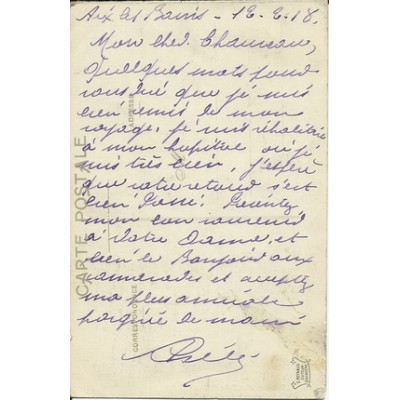 Aix les Bains - 12-2-18.
Mon cher Chauveau,
Quelques mots pour
vous dire que je suis
bien remis de mon
voyage. Je suis réhabilité
à mon hôpital où je
suis très bien, j'espère
que votre retour s'est
bien passé. Présentez
mon bon souvenir
à votre Dame, et
bien le Bonjour aux
camarades et acceptez
ma plus amicale
poignée de main
CARTE POSTALE
CORRESPONDANCE
ADRESSE